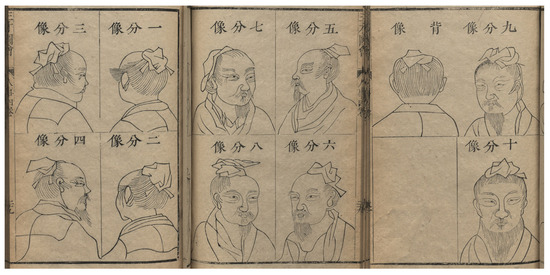 一分像
二分像
三分像
四分像
五分像
六分像
七分像
八分像
九分像
十分像
背像